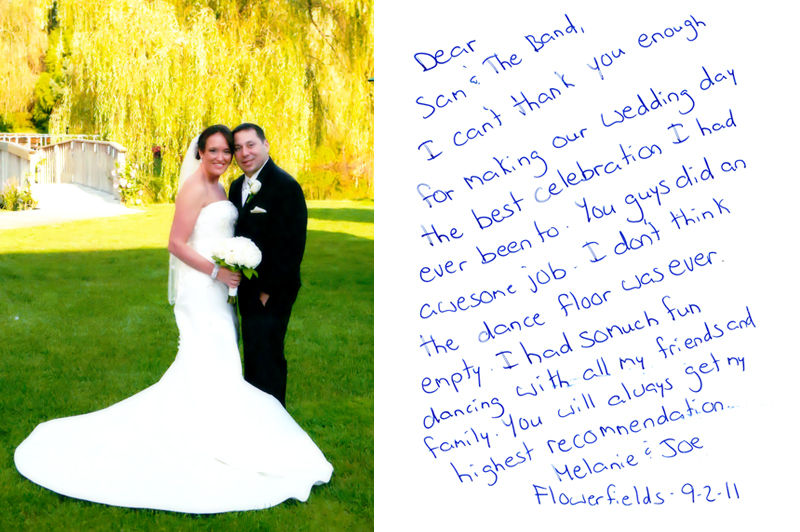 Dear
Sam & The Band,
I can't thank you enough
for making our wedding day
the best celebration I had
ever been to. You guys did an
awesome job. I don't think
the dance floor was ever
empty. I had so much fun
dancing with all my friends and
family. You will always get my
highest recommendation...
Melanie & Joe
Flowerfields - 9-2-11